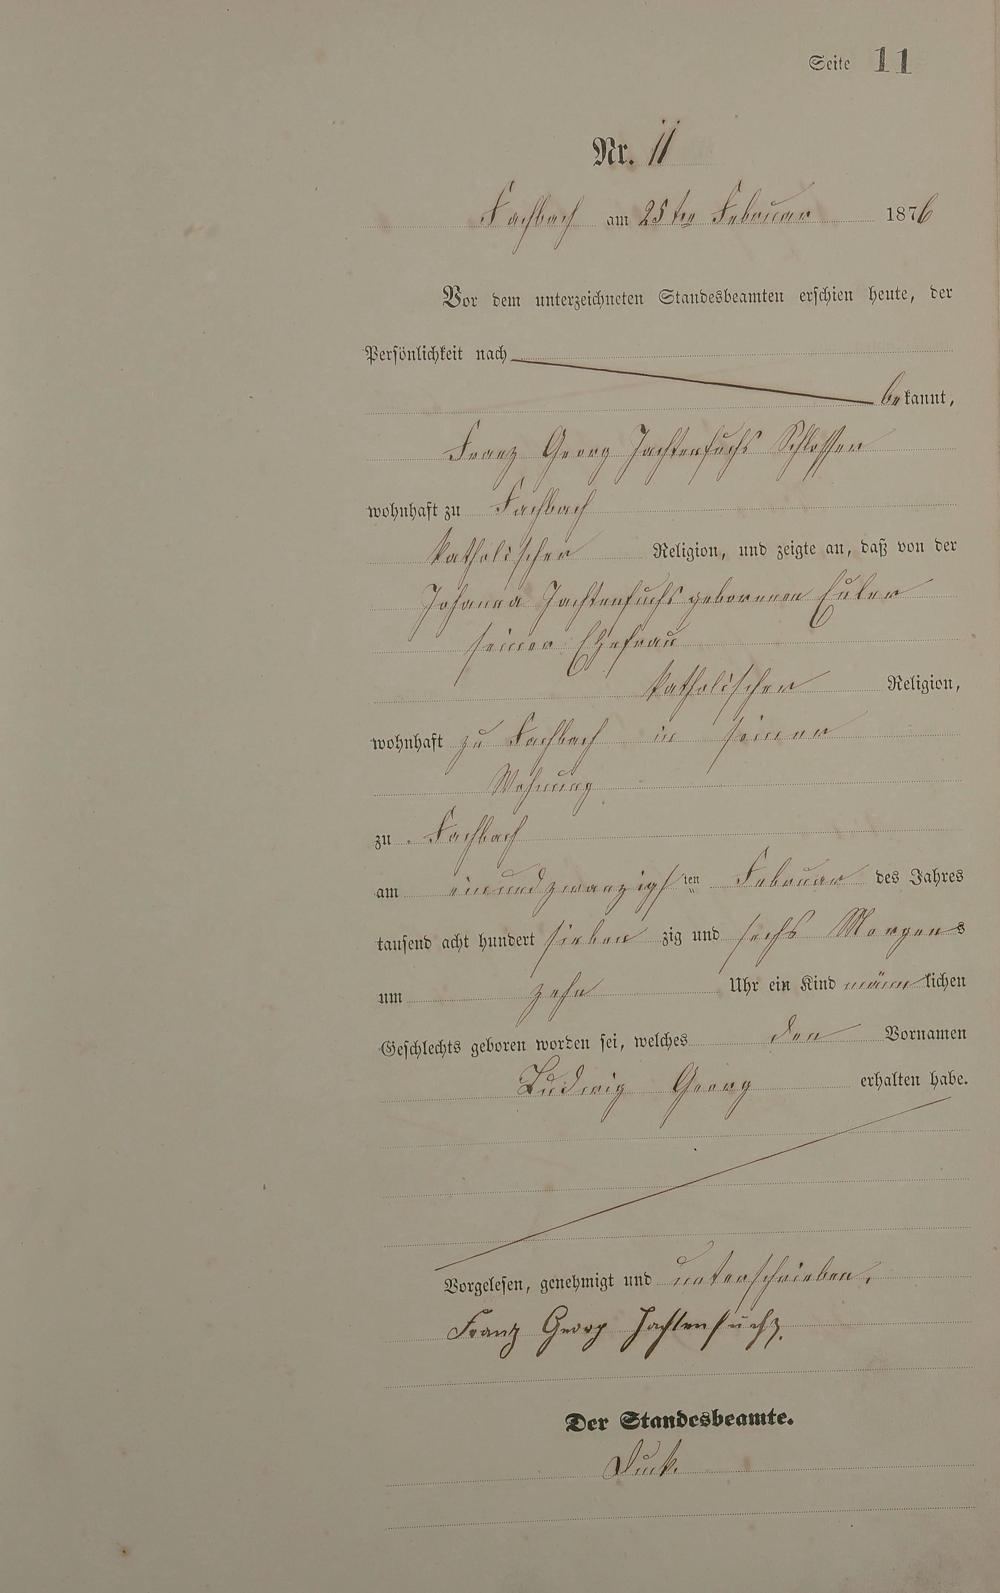 Seite 11
Nr. 11
Fachbach am 25ten Februar 1876
Vor dem unterzeichneten Standesbeamten erschien heute, der
Persönlichkeit nach
bekannt,
Franz Georg Jachtenfuchs Schlosser
wohnhaft zu Fachbach
katholischer Religion, und zeigte an, daß von der
Johanna Jachtenfuchs geborenen Euler
seiner Ehefrau
katholischer Religion,
wohnhaft zu Fachbach in seiner
Wohnung
zu Fachbach
am einundzwanzigsten Februar des Jahres
tausend acht hundert siebenzig und sechs Morgens
um zehn Uhr ein Kind männlichen
Geschlechts geboren worden sei, welches den Vornamen
Ludwig Georg erhalten habe.
Vorgelesen, genehmigt und unterschrieben.
Franz Georg Jachtenfuchs.
Der Standesbeamte.